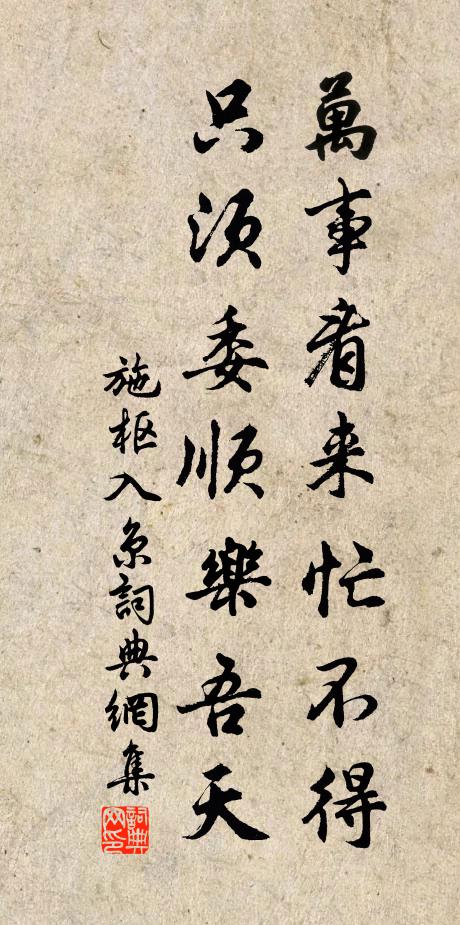 萬事看来忙不得
只須委順樂吾天
施枢入京詞典網集
詞典网印